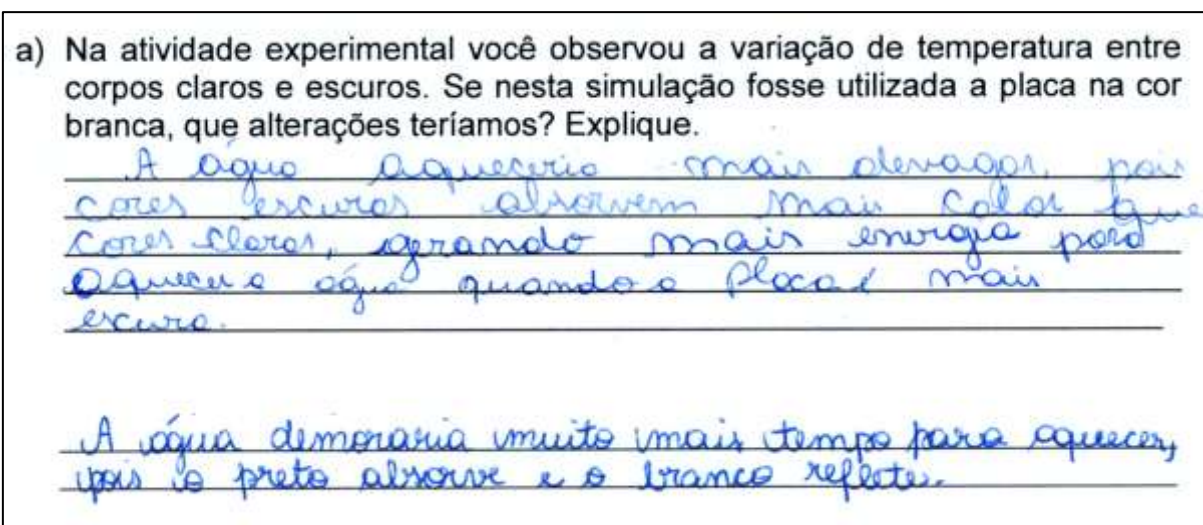 a) Na atividade experimental você observou a variação de temperatura entre
corpos claros e escuros. Se nesta simulação fosse utilizada a placa na cor
branca, que alterações teríamos? Explique.
A água aqueceria mais devagar, pois
cores escuras absorvem mais calor que
cores claras, gerando mais energia para
aquecer a água quando a placa é mais
escura.
A água demoraria muito mais tempo para aquecer,
pois o preto absorve e o branco reflete.